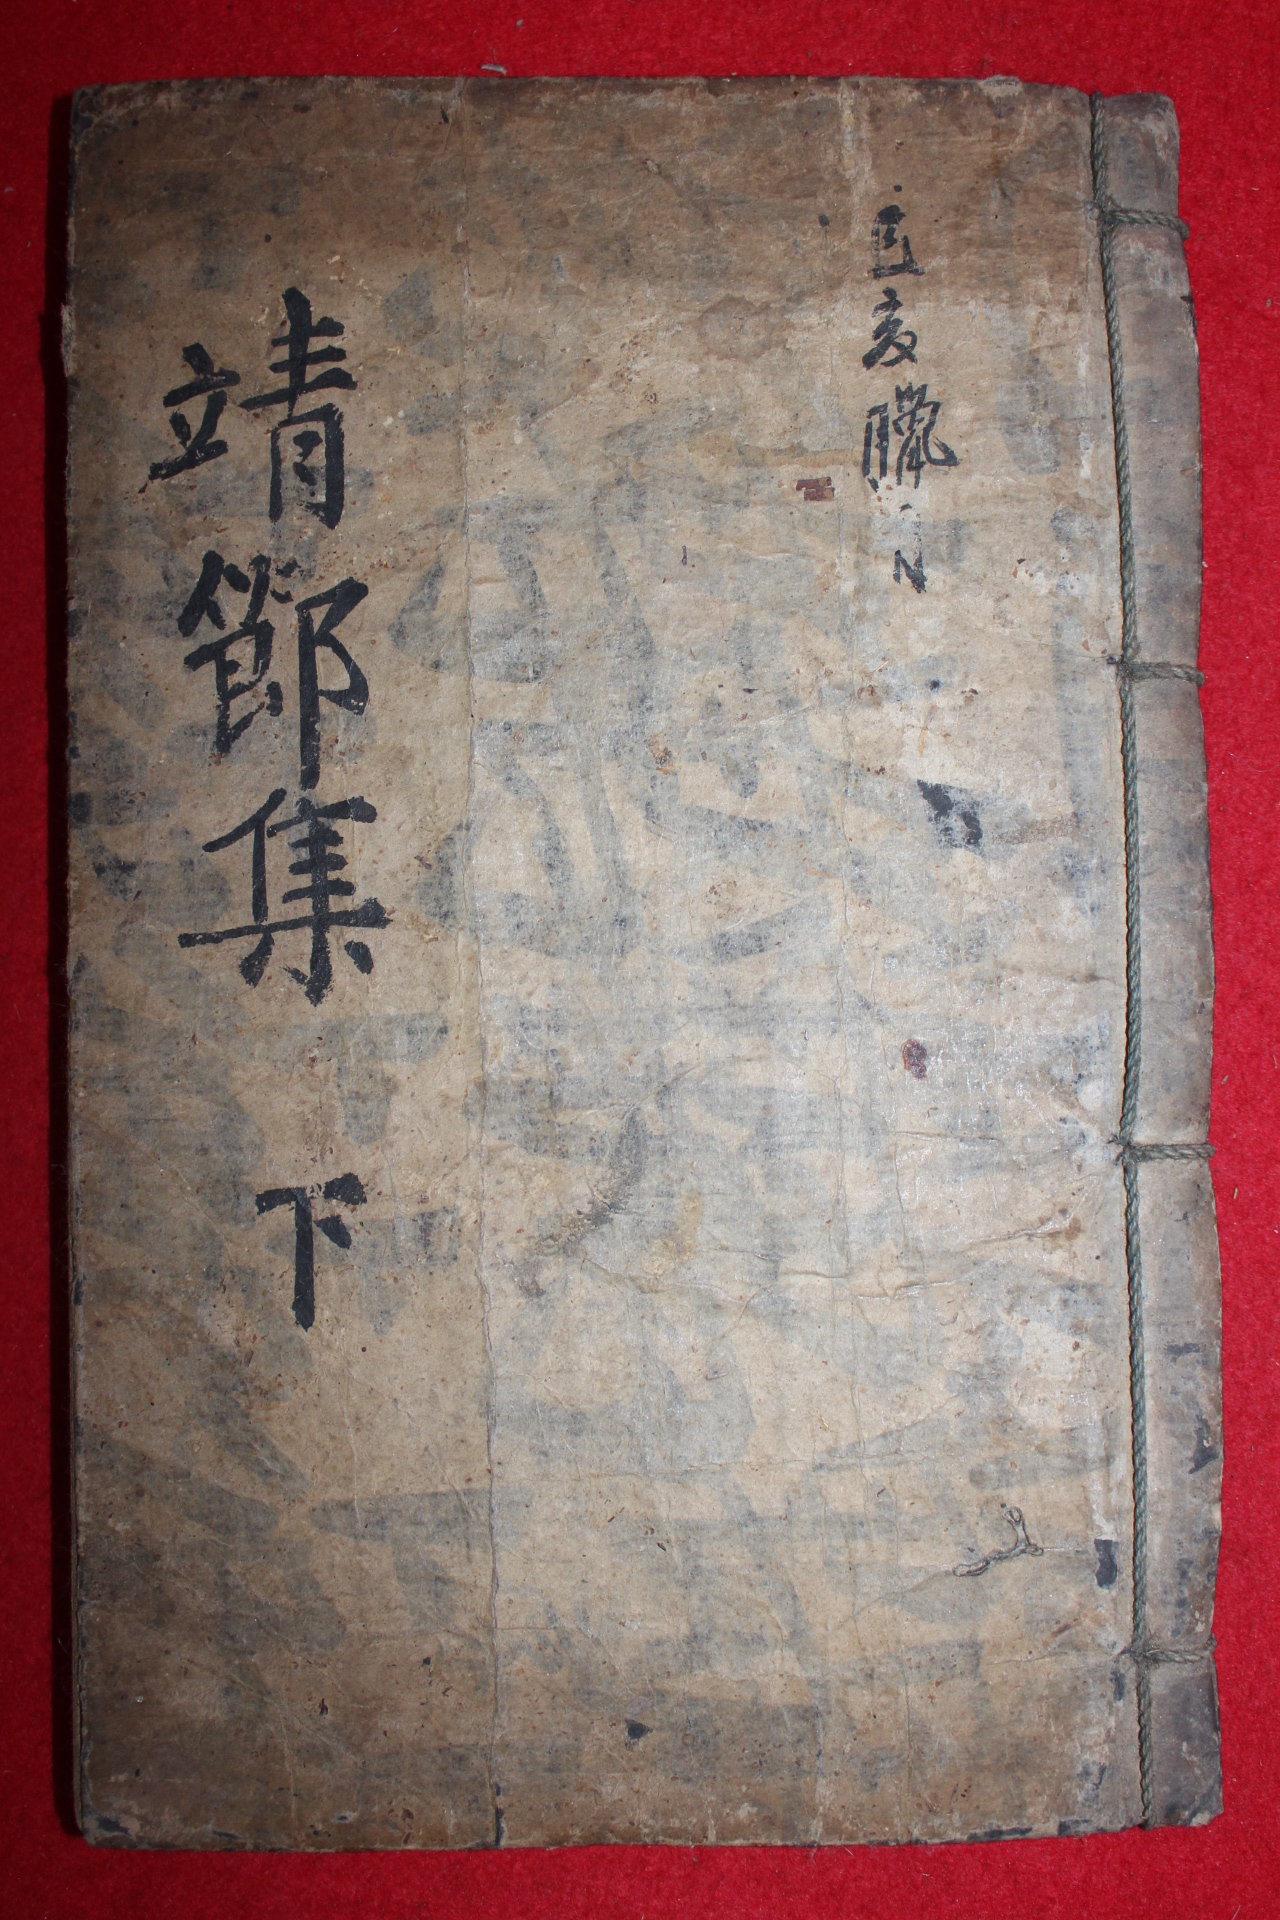 亥臘月
靖節集 下